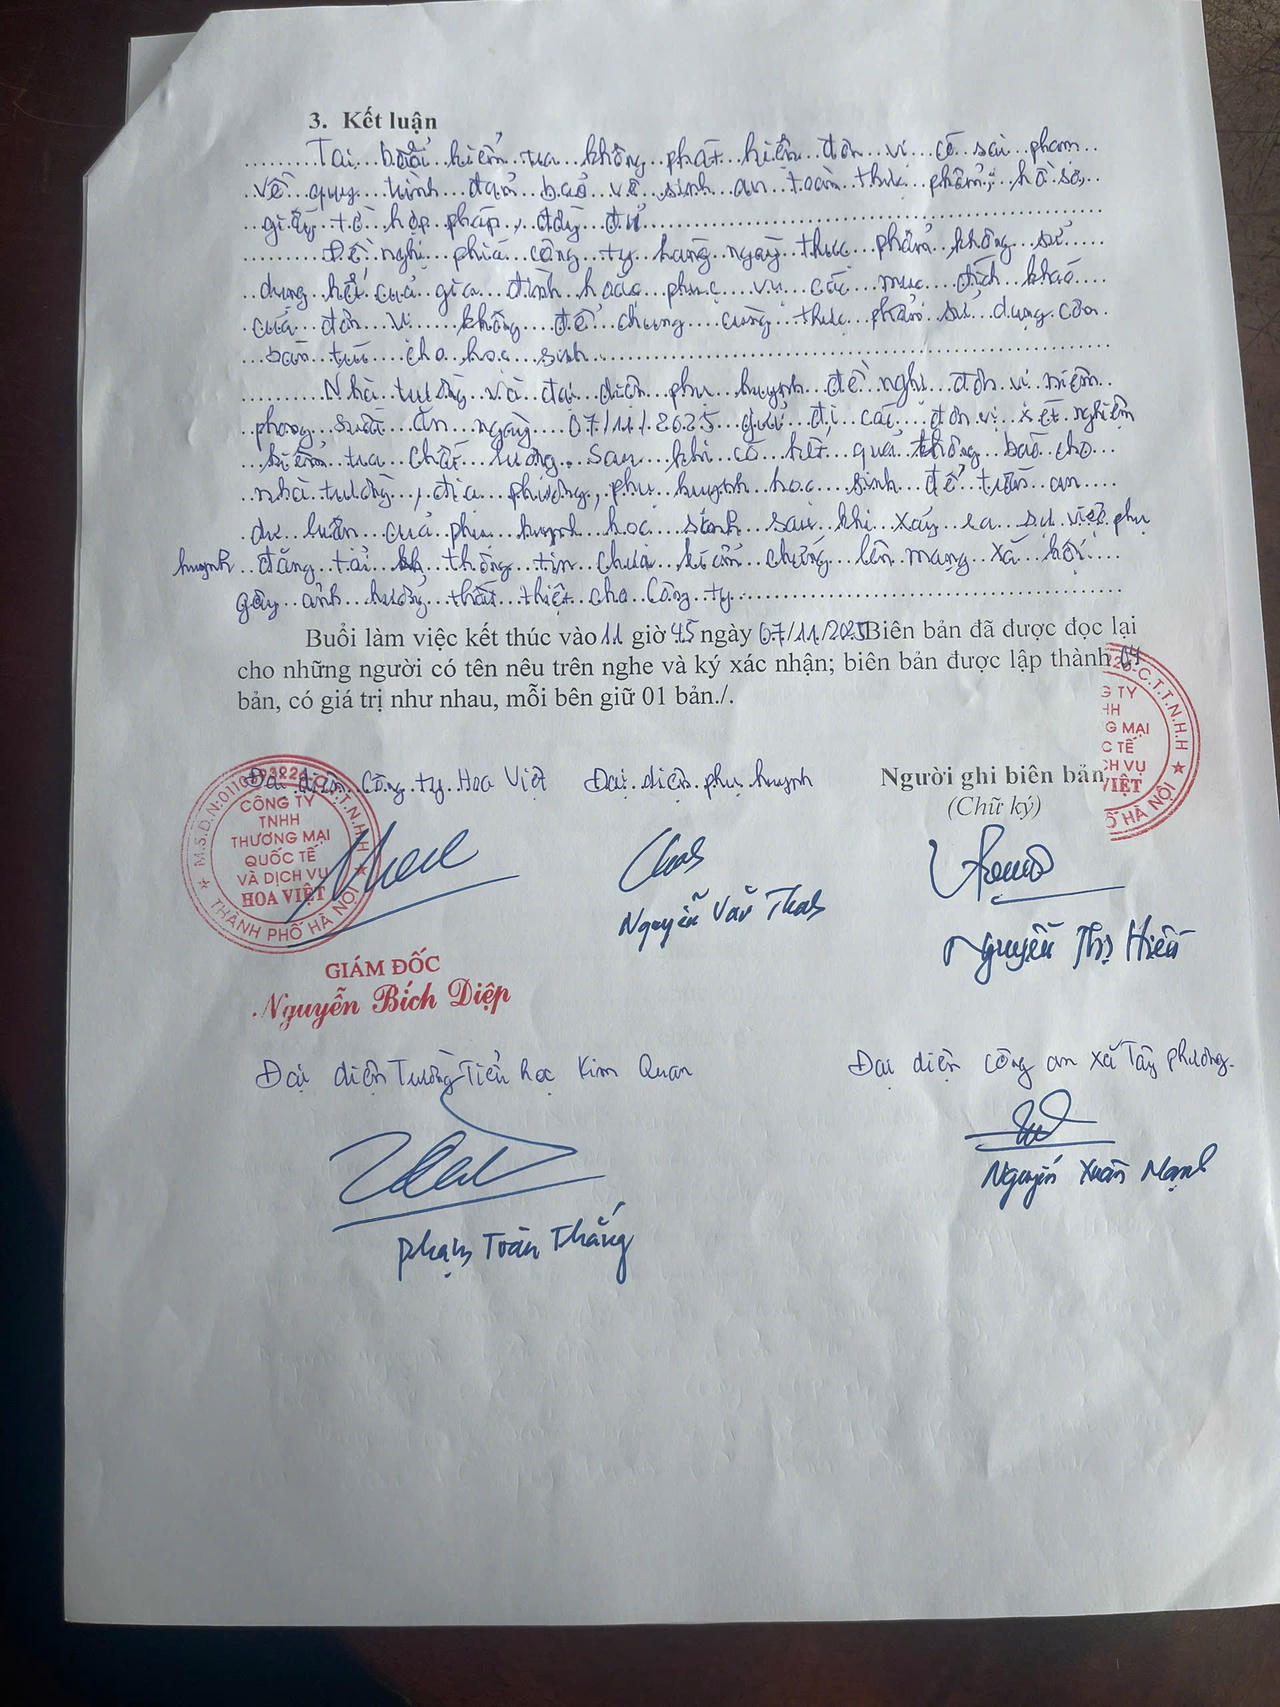 3. Kết luận
Tại buổi kiểm tra không phát hiện đơn vị có sai phạm
về quy trình đảm bảo vệ sinh an toàn thực phẩm; hồ sơ,
giấy tờ hợp pháp, đầy đủ
Đề nghị phía công ty hàng ngày thực phẩm không sử
dụng hết của gia đình hoặc phục vụ các mục đích khác
của đơn vị không để chung cùng thực phẩm sử dụng cơm
bán trú cho học sinh
Nhà trường và đại diện phụ huynh đề nghị đơn vị niêm
phong suất ăn ngày 07/11/2025 gửi đi các đơn vị xét nghiệm
kiểm tra chất lượng. Sau khi có kết quả thông báo cho
nhà trường, địa phương, phụ huynh học sinh để trấn an
dư luận của phụ huynh học sinh sau khi xảy ra sự việc phụ
huynh đăng tải thông tin chưa kiểm chứng lên mạng xã hội
gây ảnh hưởng thiệt cho Công ty
Buổi làm việc kết thúc vào 11 giờ 45 ngày 07/11/2025 Biên bản đã được đọc lại
cho những người có tên nêu trên nghe và ký xác nhận; biên bản được lập thành 04
bản, có giá trị như nhau, mỗi bên giữ 01 bản./.
Đại diện Công ty Hoa Việt Đại diện phụ huynh Người ghi biên bản
(Chữ ký)
CÔNG TY
TNHH
THƯƠNG MẠI
QUỐC TẾ
VÀ DỊCH VỤ
HOA VIỆT
THÀNH PHỐ HÀ NỘI
G TY
HH
G MẠI
C TẾ
CH VỤ
VIỆT
Ố HÀ NỘI
C.T.T.N.H.H
Nguyễn Văn
Nguyễn Thị Hiền
GIÁM ĐỐC
Nguyễn Bích Diệp
Đại diện Trường Tiểu học Kim Quan Đại diện công an xã Tây Phương.
Nguyễn Xuân Mạnh
Phạm Toàn Thắng